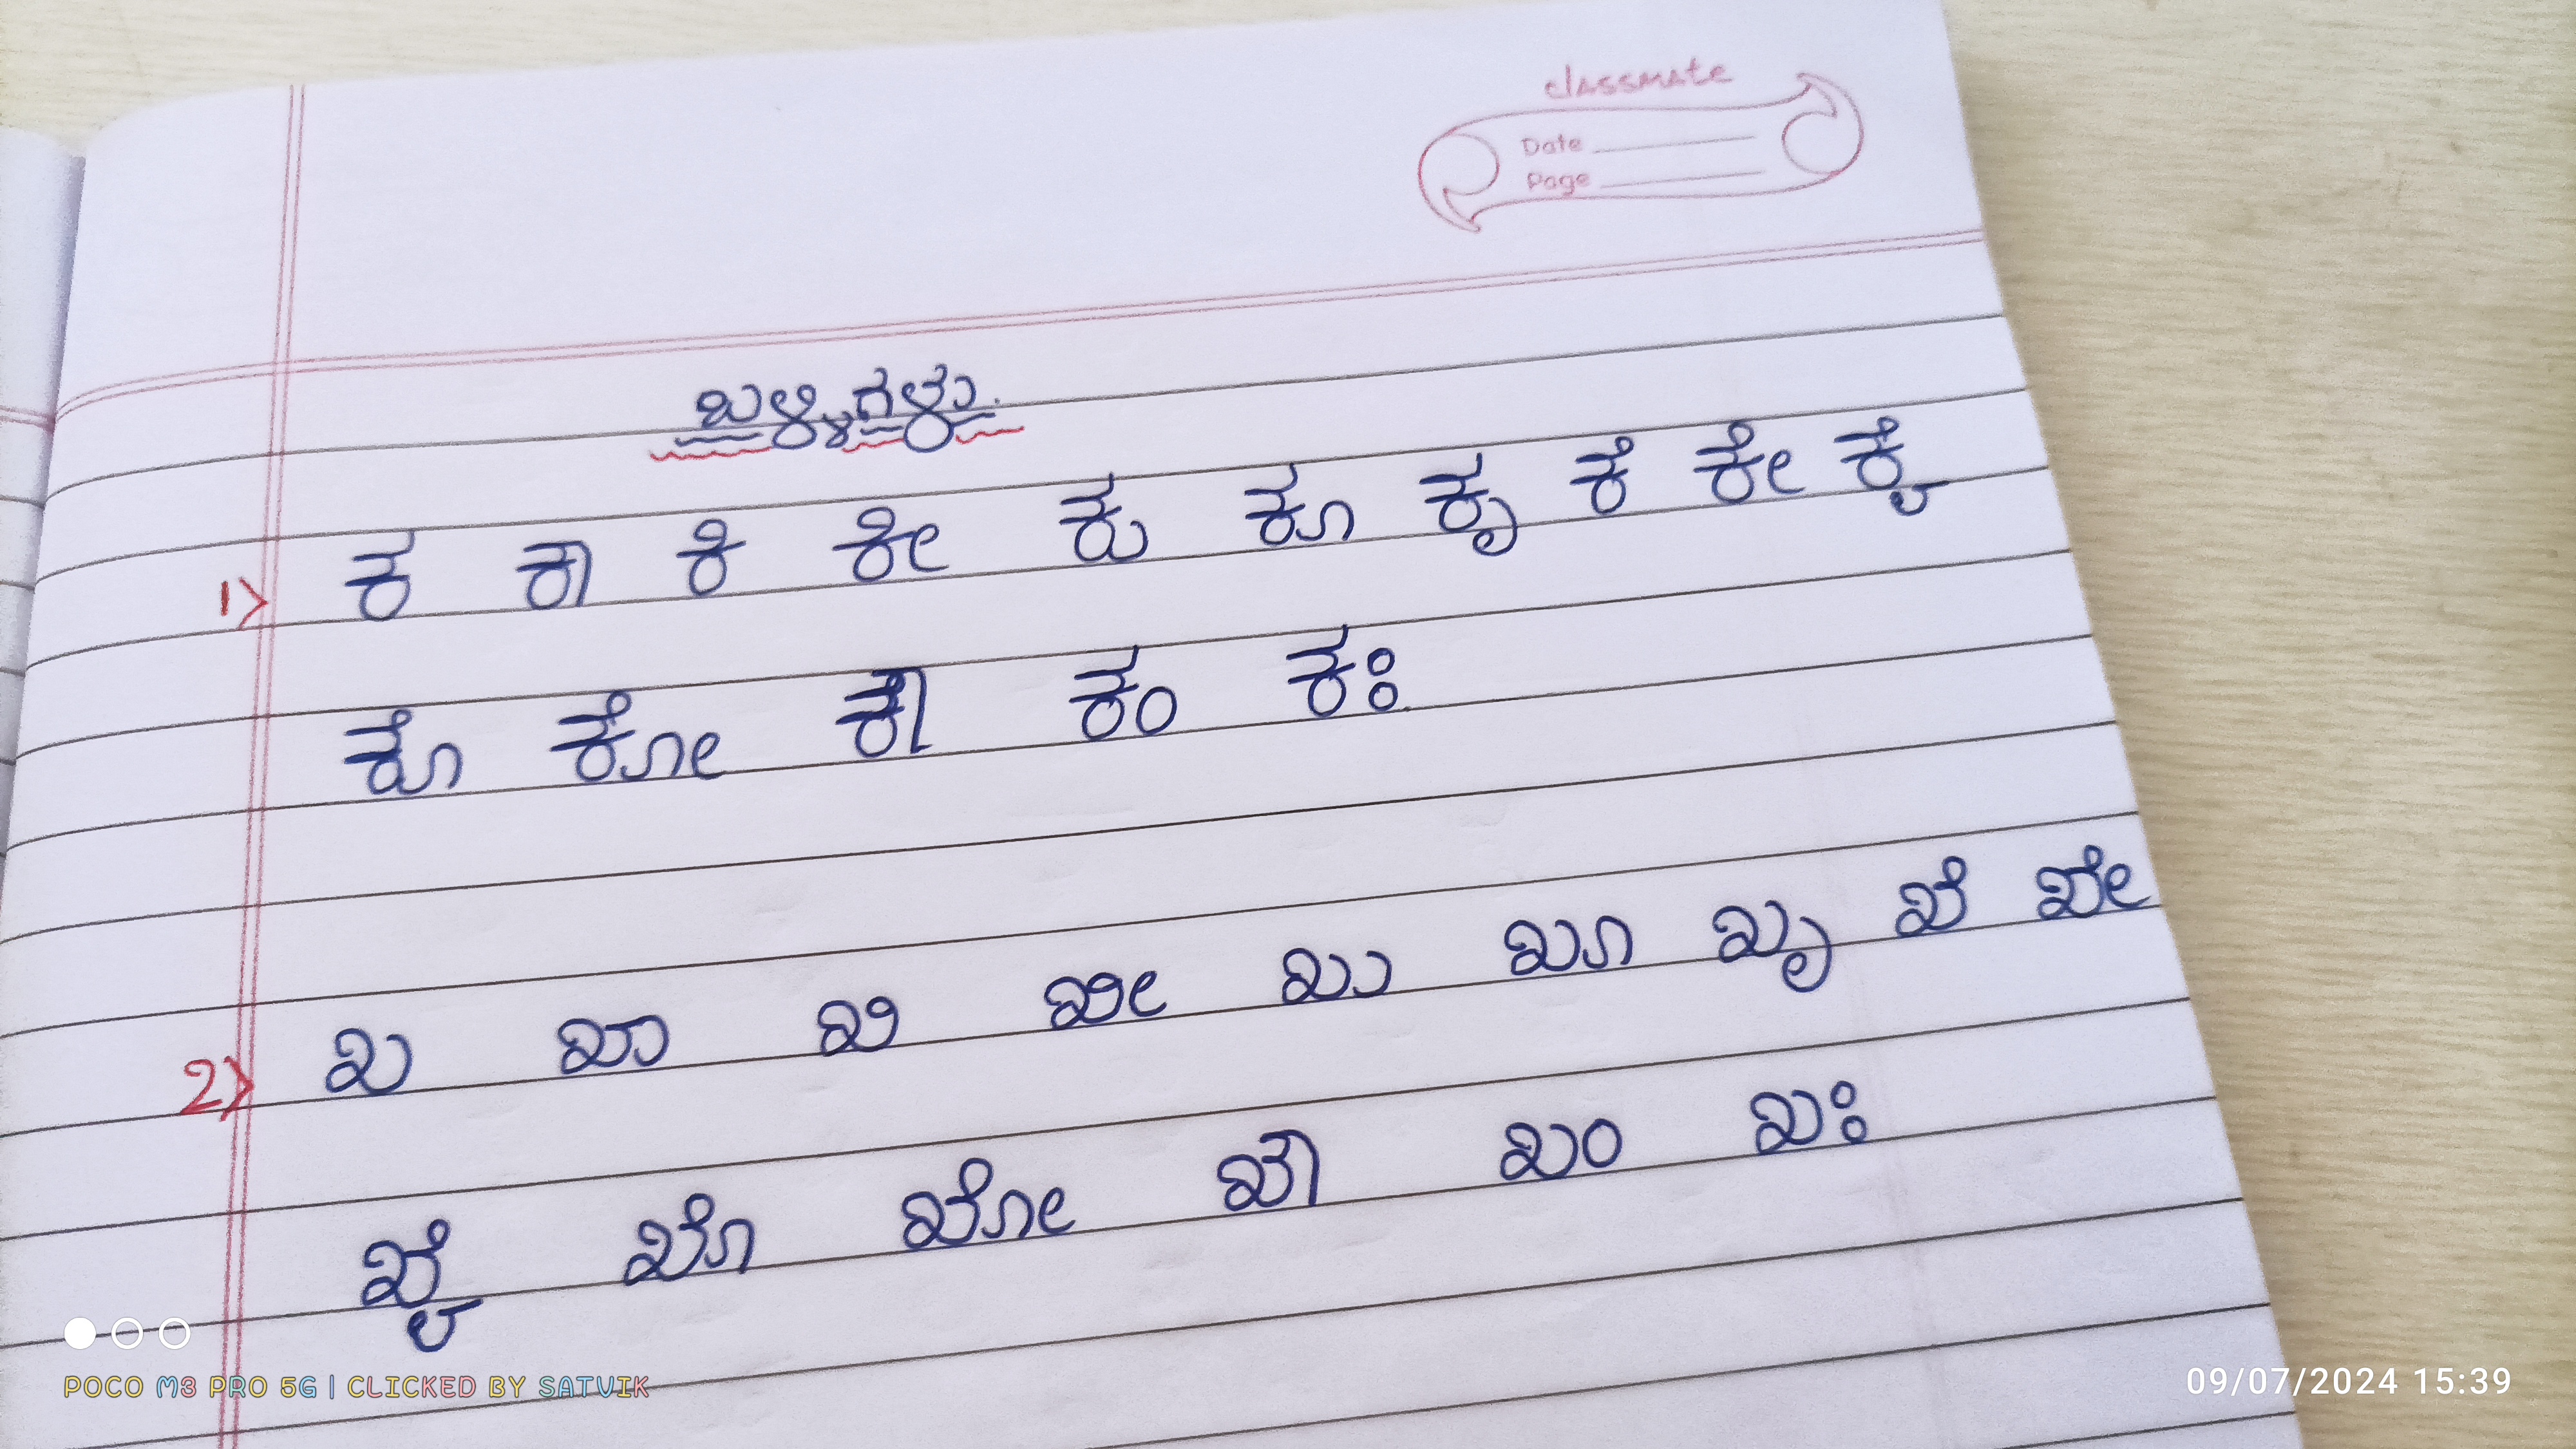 classmate
Date
Page
ಬಳ್ಳಿಗಳು.
1> ಕ ಕಾ ಕಿ ಕೀ ಕು ಕೂ ಕೃ ಕೆ ಕೇ ಕೈ
ಕೊ ಕೋ ಕೌ ಕಂ ಕಃ
2> ಖ ಖಾ ಖಿ ಖೀ ಖು ಖೂ ಖೃ ಖೆ ಖೇ
ಖೈ ಖೊ ಖೋ ಖೌ ಖಂ ಖಃ
POCO M3 PRO 5G | CLICKED BY SATVIK
09/07/2024 15:39